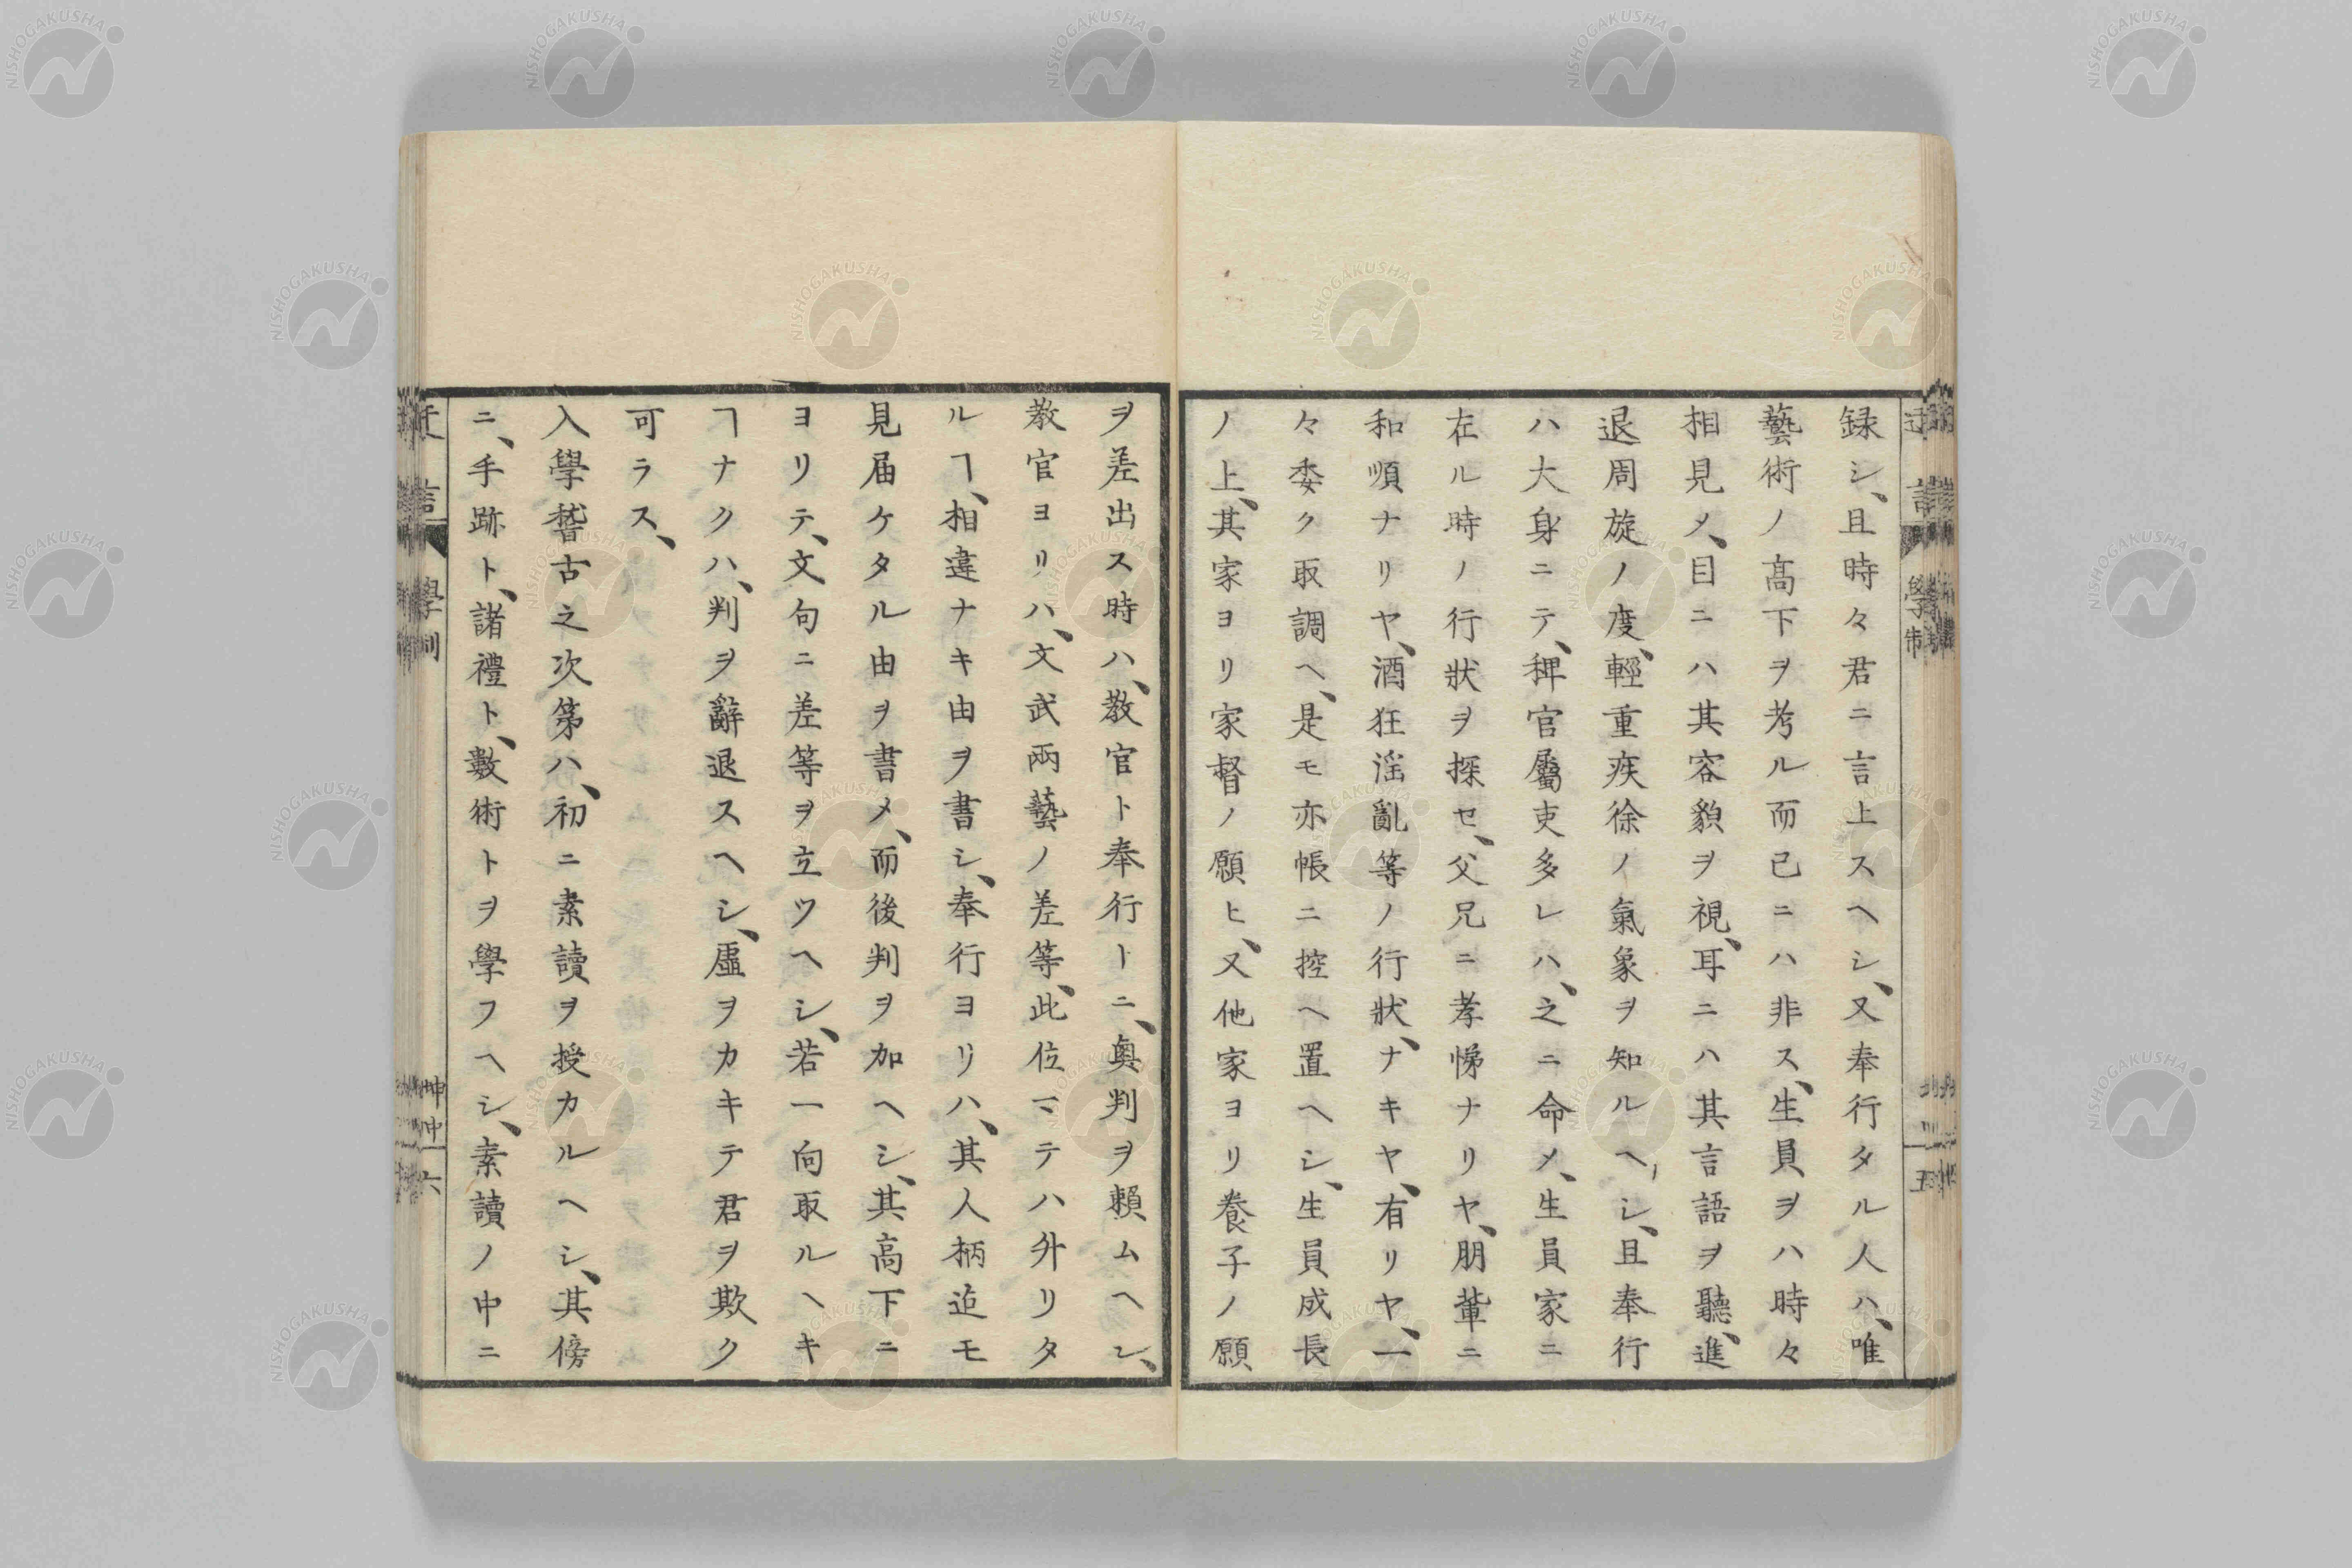 録シ、且時々君ニ言上スヘシ、又奉行タル人ハ、唯
藝術ノ高下ヲ考ル而已ニハ非ス、生員ヲハ時々
相見メ、目ニハ其容貌ヲ視、耳ニハ其言語ヲ聽、進
退周旋ノ度、輕重疾徐ノ氣象ヲ知ルヘシ、且奉行
ハ大身ニテ、稗官屬吏多レハ、之ニ命メ、生員家ニ
在ル時ノ行狀ヲ探セ、父兄ニ孝悌ナリヤ、朋輩ニ
和順ナリヤ、酒狂淫亂等ノ行狀、ナキヤ、有リヤ、一
々委ク取調ヘ、是モ亦帳ニ控ヘ置ヘシ、生員成長
ノ上、其家ヨリ家督ノ願ヒ、又他家ヨリ養子ノ願
ヲ差出ス時ハ、教官ト奉行トニ、奥判ヲ頼ムヘシ、
教官ヨリハ、文武兩藝ノ差等、此位マテハ升リタ
ルヿ、相違ナキ由ヲ書シ、奉行ヨリハ、其人柄迄モ
見届ケタル由ヲ書メ、而後判ヲ加ヘシ、其高下ニ
ヨリテ、文句ニ差等ヲ立ツヘシ、若一向取ルヘキ
ヿナクハ、判ヲ辭退スヘシ、虛ヲカキテ君ヲ欺ク
可ラス、
入學稽古之次第ハ、初ニ素讀ヲ授カルヘシ、其傍
ニ、手跡ト、諸禮ト、數術トヲ學フヘシ、素讀ノ中ニ
NISHOGAKUSHA